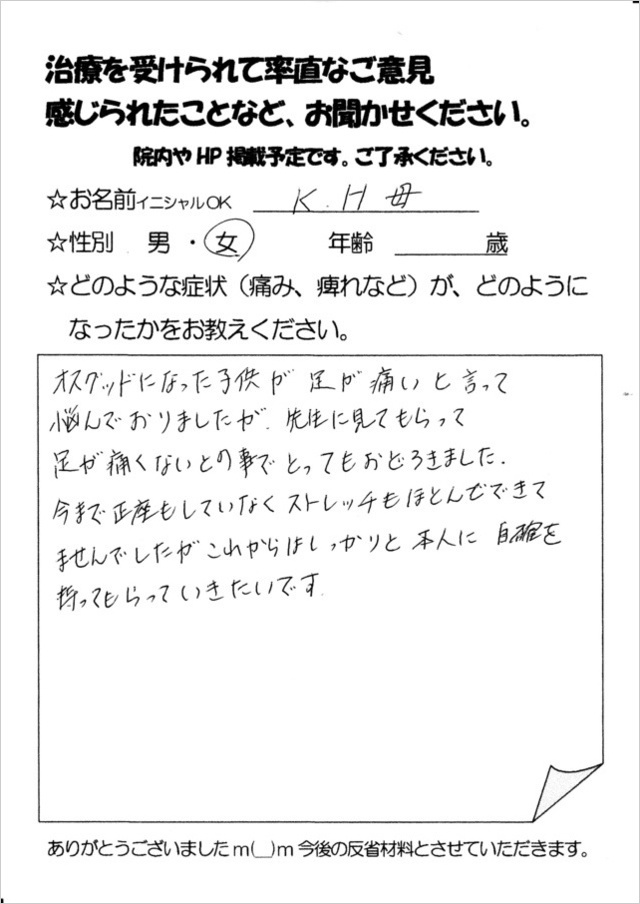 治療を受けられて率直なご意見
感じられたことなど、お聞かせください。
院内やHP掲載予定です。ご了承ください。
☆お名前イニシャルOK K.H母
☆性別 男・女 年齢 歳
☆どのような症状（痛み、痺れなど）が、どのように
なったかをお教えください。
オスグッドになった子供が足が痛いと言って
悩んでおりましたが、先生に見てもらって
足が痛くないとの事でとってもおどろきました.
今まで正座もしていなくストレッチもほとんどできて
ませんでしたがこれからはしっかりと本人に自確を
持ってもらっていきたいです.
ありがとうございましたm(__)m今後の反省材料とさせていただきます。